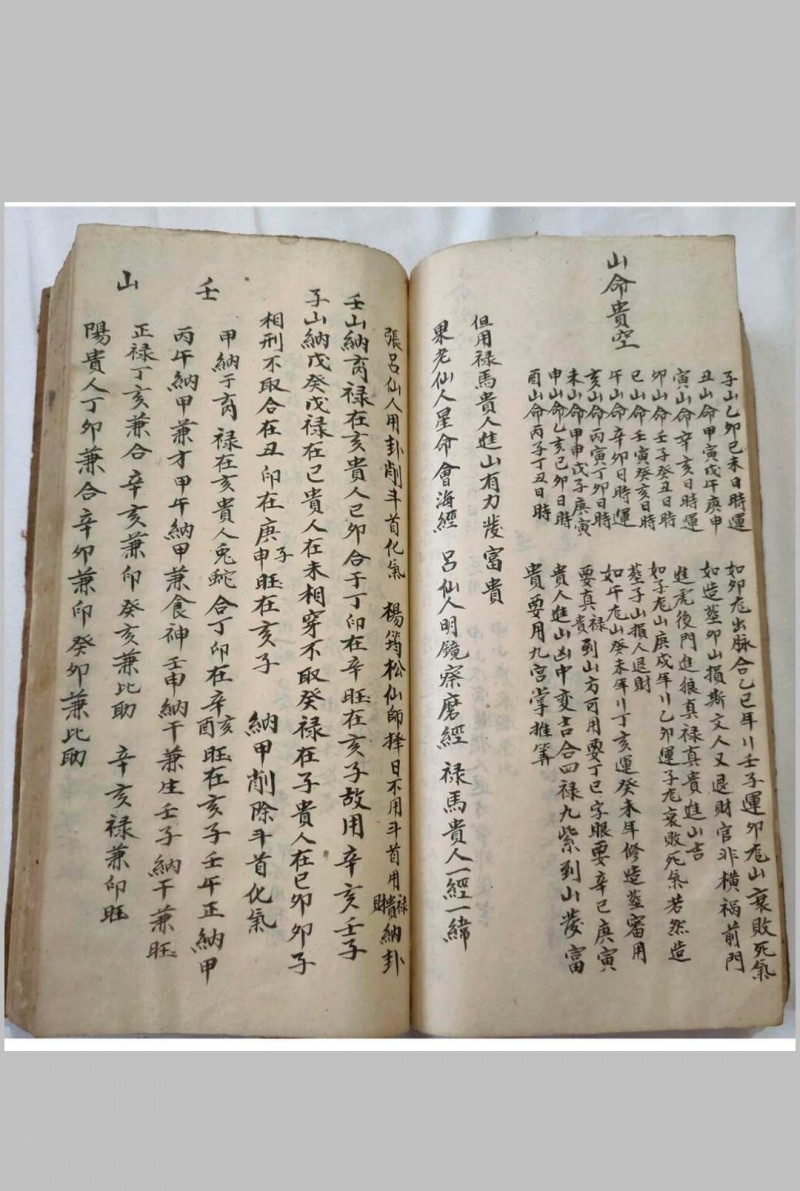 山命貴空
子山乙卯己未日時運
丑山命甲寅戊午庚申
寅山命辛亥日時運
卯山命壬子癸丑日時
巳山命壬寅癸亥日時
午山命辛卯日時運
亥山命丙寅丁卯日時
未山命甲申戊子庚寅
申山命乙亥己卯日時
酉山命丙子丁丑日時
如卯龙出脉合乙巳年刂壬子運卯龙山衰敗死氣
如造塟卯山損斯文人又退財官非橫禍前門
進虎後門進狼真禄真貴進山吉
如子龙山庚戌年刂乙卯運子龙衰敗死氣若然造
塟子山損人退財
如午龙山癸未年刂丁亥運癸未年修造塟審用
要真禄貴到山方可用要丁巳字眼要辛巳庚寅
貴人進山凶中变吉合四禄九紫到山發富
貴要用九宮掌推算
但用禄馬貴人進山有力發富貴
果老仙人星命會海經 呂仙人明鏡察磨經 禄馬貴人一經一緯
張呂仙人用卦削斗首化氣 楊筠松仙師择日不用斗首用禄貴財納卦
壬山納禄在亥貴人巳卯合于丁卯在辛旺在亥子故用辛亥壬子
子山納戊癸戊禄在巳貴人在未相穿不取癸禄在子貴人在巳卯卯子
相刑不取合在丑卯在庚申旺在亥子 納甲削除斗首化氣
甲納于禄在亥貴人兔蛇合丁卯在辛亥酉旺在亥子壬午正納甲
壬山
丙午納甲兼才甲午納甲兼食神壬申納干兼生壬子納干兼旺
正禄丁亥兼合辛亥兼卯癸亥兼比助 辛亥禄兼卯旺
陽貴人丁卯兼合辛卯兼卯癸卯兼比助